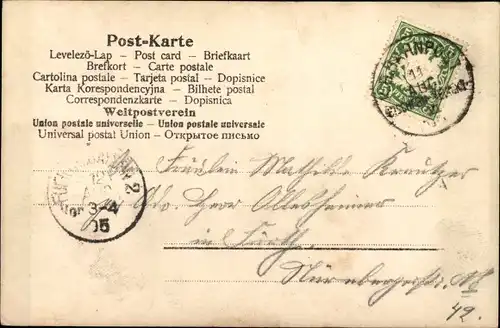 Post-Karte
Levelező-Lap — Post card — Briefkaart
Brefkort — Carte postale
Cartolina postale – Tarjeta postal – Dopisnice
Karta Korespondencyjna – Bilhete postal
Correspondenzkarte – Dopisnica
Weltpostverein
Union postale universelle – Union postale universale
Universal postal Union – Открытое письмо
BAHNPOST
11
Fräulein Mathilde Kreutzer
Ado. Herr
3-4
05
in Fürth
Nürnbergerstr.
42.